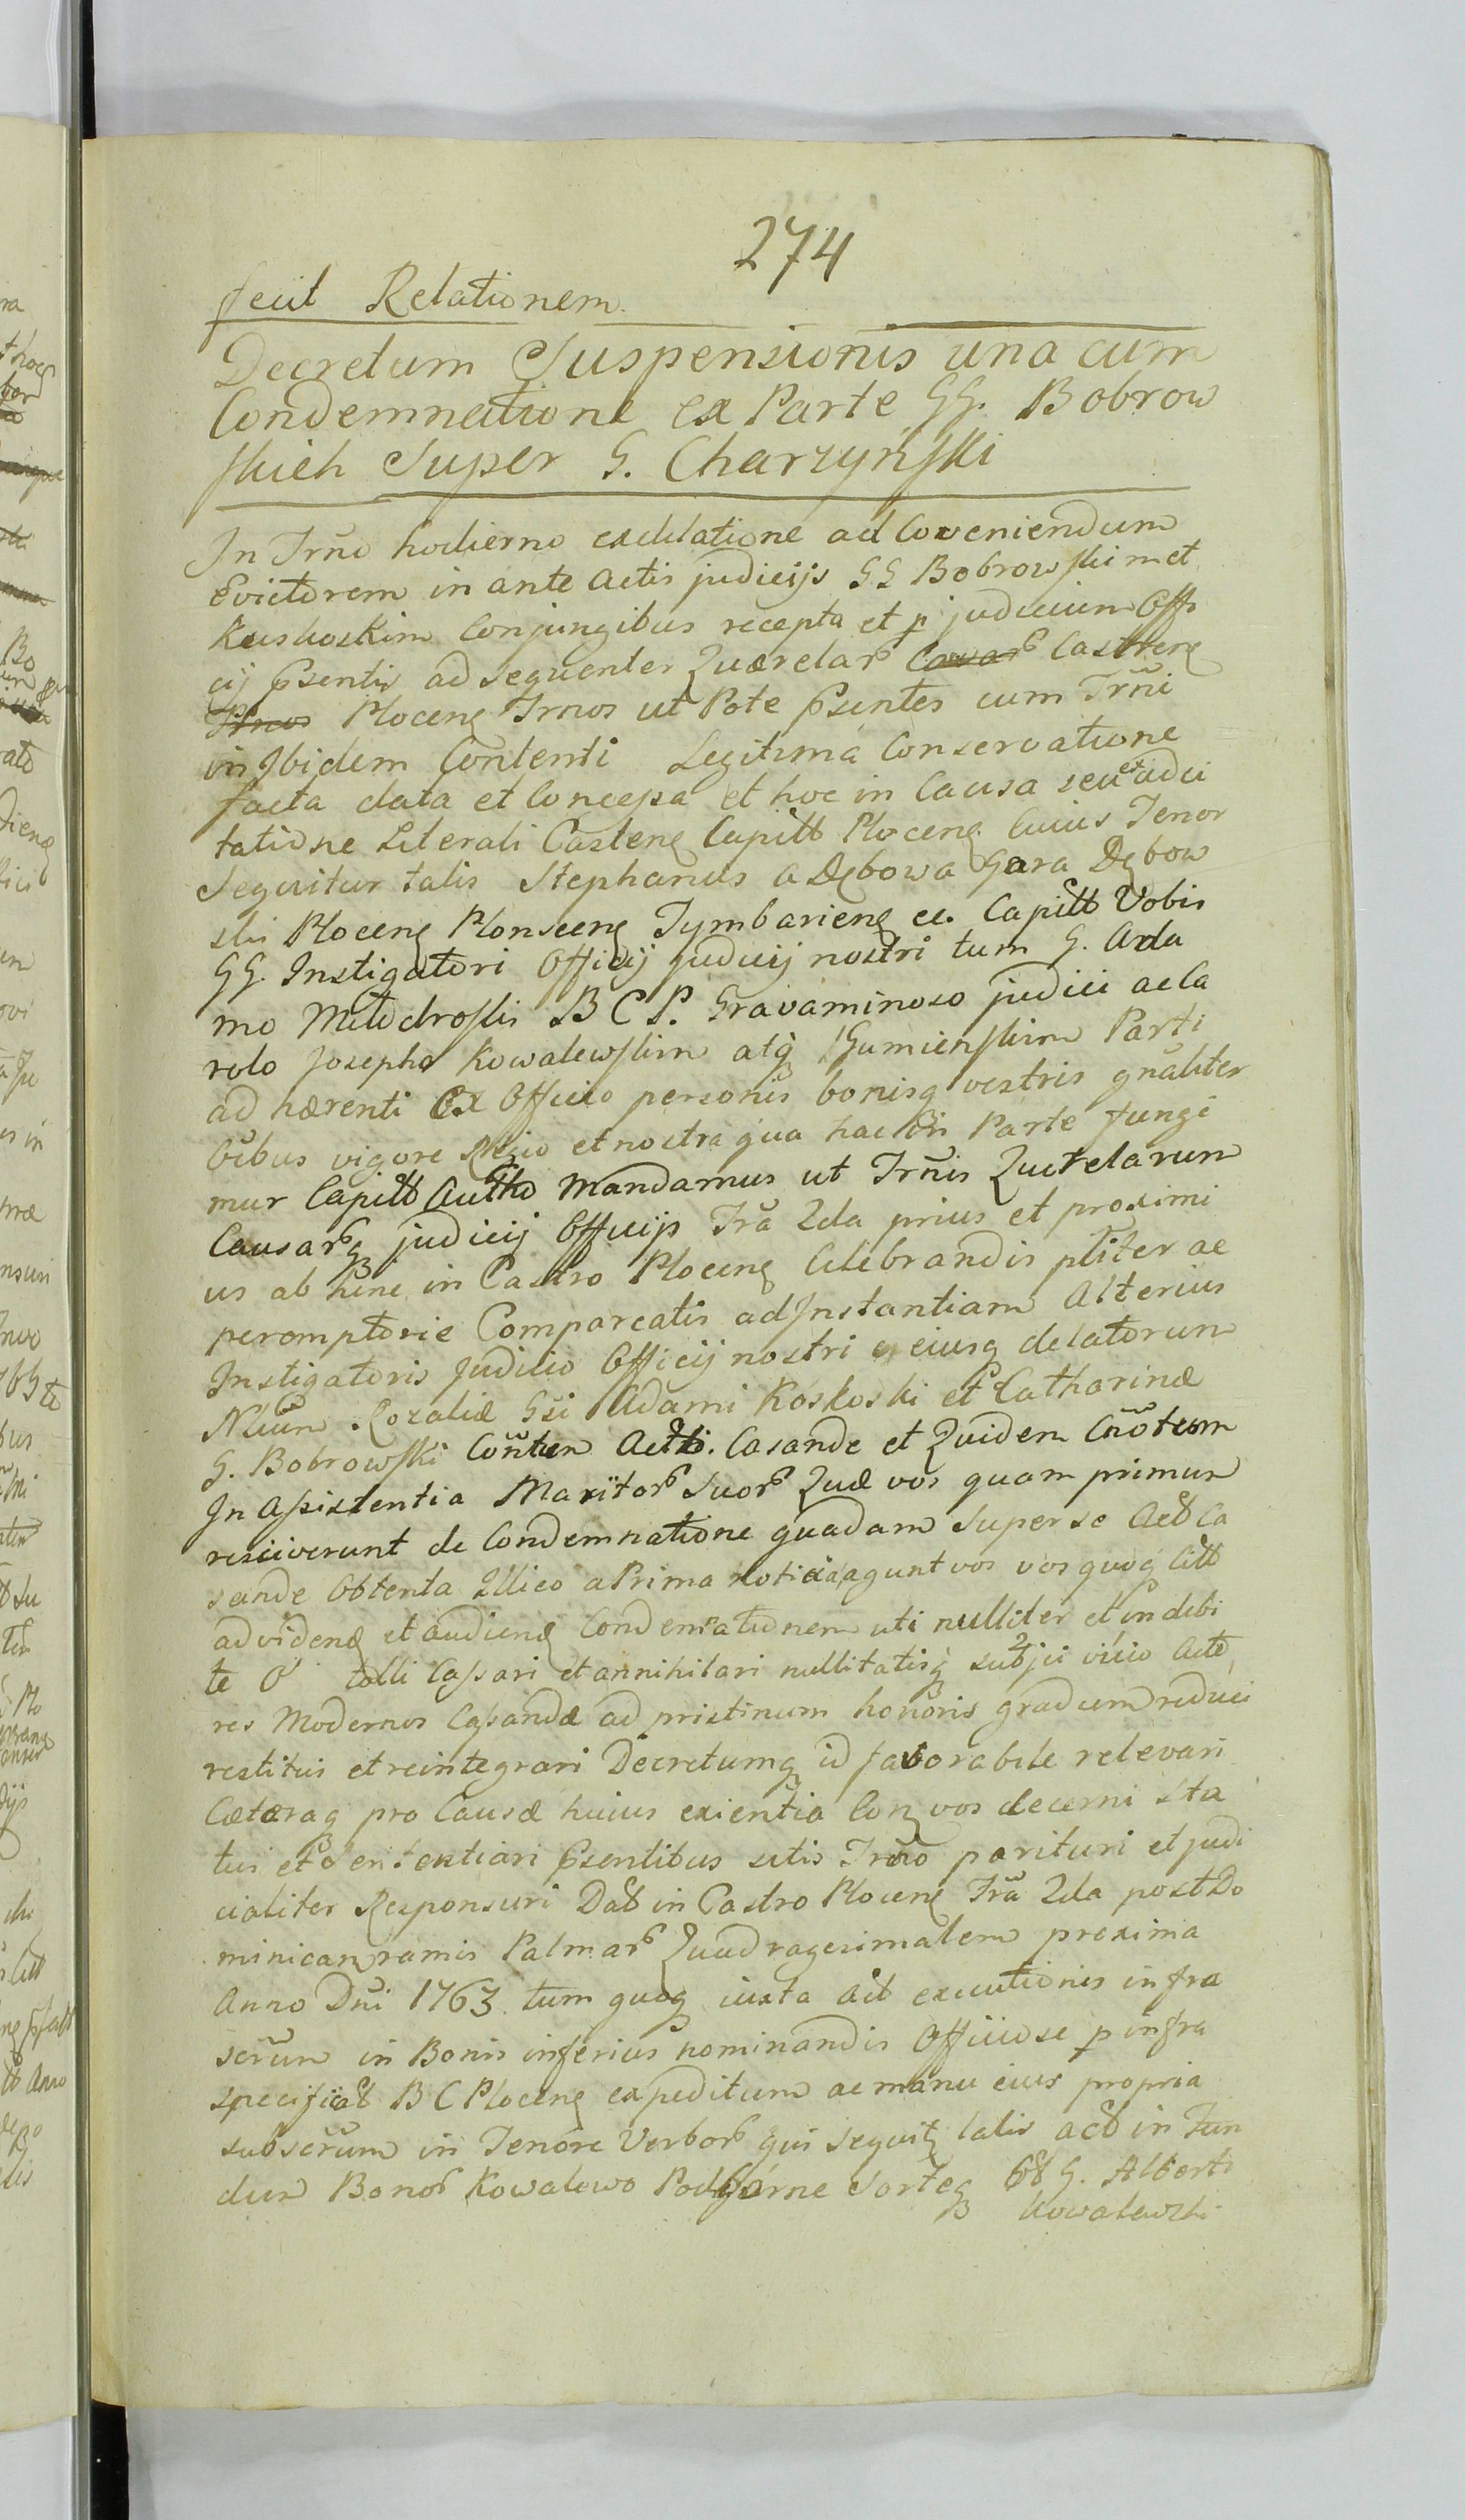 274
fecit Relationem.
Decretum Suspensionis una cum
Condemnatione ex Parte GG. Bobrow
skich Super G. Charzynski
In Trño hodierno exdilatione ad Coveniendum
Evictorem in ante Actis judicijs GG Bobrowskim et
Koskoskim Conjungibus recepta et p judicium Offi
cij Psentis ad sequenter Quærelar Castrenẽ
Plocenẽ Trnos ut Pote Psentes cum Trñi
in Ibidem Contenti Legitima Conservatione
facta data et Concessa et hoc in Causa seu et adci
tatione Literali Castenẽ Capitt Plocenẽ Cuius Tenor
Sequitur talis Stephanus a Dębowa Gora Dębow
ski Plocenẽ Plonscenẽ Tymbarienẽ ec. Capitt Vobis
GG. Instigatori Officij judicij nostri tum G. Ada
mo Młodroski B C P. Gravaminoso judici ac Ca
rolo Josepho Kowalewskim atq Gumienskim Parti
ad hærenti Ex Officio personis bonisq vestris gñaliter
õibus vigore Regio et nostra qua hac in Parte fungi
mur Capitt Autho Mandamus ut Trñis Querelarum
Causarq judicij Officijs Fra 2da prius et proximi
us ab hinc in Castro Plocenẽ Celebrandis pliter ac
peremptorie Compareatis ad Instantiam Alterius
Instigatoris Judicio Officij nostri eiusq delatorum
Rozaliæ Gsi Adami Koskoski et Catharinæ
G. Bobrowski Casande et Quidem
In Assistentia Maritor Suor Quæ vos quam primum
resciverunt de Condemnatione quadam Super se Act Ca
sande Obtenta Illico a Prima noticia agunt vos vosquoq Citt
ad videnđ et audienđ Condemnationem uti nulliter et indebi
te O tolli Cassari et annihilari nullitatisq subjici vicio Acto
res Modernos Cassandæ ad pristinum honoris gradum reduci
restitui et reintegrari Decretumq id favorabile relevari
Cæteraq pro Causæ huius exientia Con vos decerni Sta
tui et Sententiari Psentibus sitis Trño parituri et judi
cialiter Responsuri Dat in Castro Plocenẽ Fra 2da post Do
minicam ramis Palmar Quadragesimalem proxima
Anno Dñi 1763. tum quoq iuxta Act executionis infra
scrum in Bonis inferius nominandis Officiose p infra
specificat B C Plocenẽ expeditum ac manu eius propria
subscrum in Tenore Verbor qui sequitz talis act in Fun
dum Bonor Kowalewo Podgorne Sortesq G. Alberti
Kowalewski